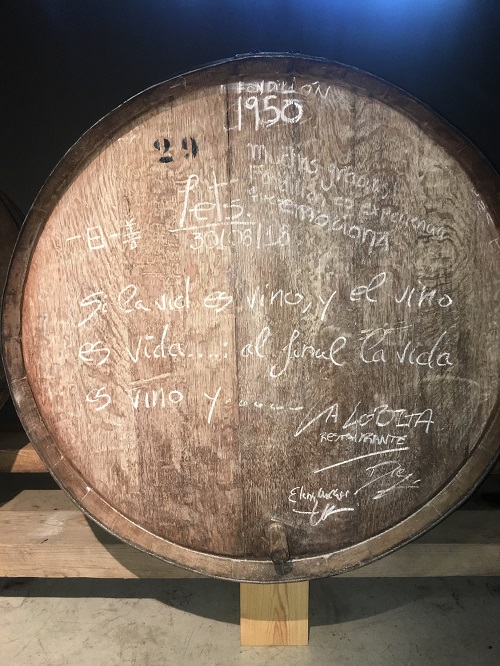 FONDILLÓN
1950
29
Muchas gracias,
Fondillón es experiencia
que emociona
Pets.
30/08/18
一日一善
Si la vid es vino, y el vino
es vida....: al final la vida
es vino y.....
RESTAURANTE